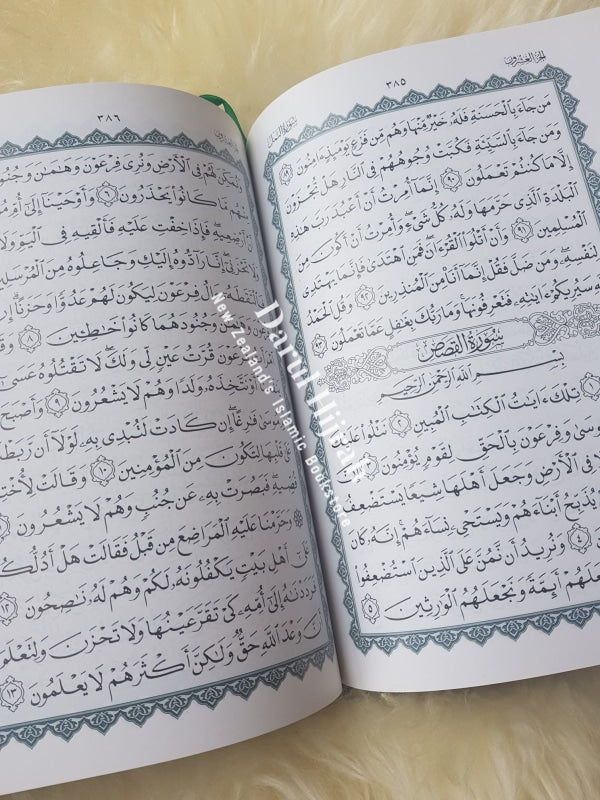 الجزء العشرون
٣٨٥
مَن جَآءَ بِٱلْحَسَنَةِ فَلَهُۥ خَيْرٌ مِّنْهَا وَهُم مِّن فَزَعٍ يَوْمَئِذٍ ءَامِنُونَ ٨٩
وَمَن جَآءَ بِٱلسَّيِّئَةِ فَكُبَّتْ وُجُوهُهُمْ فِى ٱلنَّارِ هَلْ تُجْزَوْنَ
إِلَّا مَا كُنتُمْ تَعْمَلُونَ ٩٠ إِنَّمَآ أُمِرْتُ أَنْ أَعْبُدَ رَبَّ هَٰذِهِ
ٱلْبَلْدَةِ ٱلَّذِى حَرَّمَهَا وَلَهُۥ كُلُّ شَىْءٍ وَأُمِرْتُ أَنْ أَكُونَ مِنَ
ٱلْمُسْلِمِينَ ٩١ وَأَنْ أَتْلُوَا۟ ٱلْقُرْءَانَ فَمَنِ ٱهْتَدَىٰ فَإِنَّمَا يَهْتَدِى
لِنَفْسِهِۦ وَمَن ضَلَّ فَقُلْ إِنَّمَآ أَنَا۠ مِنَ ٱلْمُنذِرِينَ ٩٢ وَقُلِ ٱلْحَمْدُ
لِلَّهِ سَيُرِيكُمْ ءَايَٰتِهِۦ فَتَعْرِفُونَهَا وَمَا رَبُّكَ بِغَٰفِلٍ عَمَّا تَعْمَلُونَ ٩٣
سُورَةُ القَصَصِ
بِسْمِ ٱللَّهِ ٱلرَّحْمَٰنِ ٱلرَّحِيمِ
١ تِلْكَ ءَايَٰتُ ٱلْكِتَٰبِ ٱلْمُبِينِ ٢ نَتْلُوا۟ عَلَيْكَ
مُوسَىٰ وَفِرْعَوْنَ بِٱلْحَقِّ لِقَوْمٍ يُؤْمِنُونَ ٣
فِى ٱلْأَرْضِ وَجَعَلَ أَهْلَهَا شِيَعًا يَسْتَضْعِفُ
يُذَبِّحُ أَبْنَآءَهُمْ وَيَسْتَحْىِۦ نِسَآءَهُمْ إِنَّهُۥ كَانَ
٤ وَنُرِيدُ أَن نَّمُنَّ عَلَى ٱلَّذِينَ ٱسْتُضْعِفُوا۟
وَنَجْعَلَهُمْ أَئِمَّةً وَنَجْعَلَهُمُ ٱلْوَٰرِثِينَ ٥
٣٨٦
وَنُمَكِّنَ لَهُمْ فِى ٱلْأَرْضِ وَنُرِىَ فِرْعَوْنَ وَهَٰمَٰنَ وَجُنُودَهُمَا
مِنْهُم مَّا كَانُوا۟ يَحْذَرُونَ ٦ وَأَوْحَيْنَآ إِلَىٰٓ أُمِّ
أَنْ أَرْضِعِيهِ فَإِذَا خِفْتِ عَلَيْهِ فَأَلْقِيهِ فِى ٱلْيَمِّ وَلَا
وَلَا تَحْزَنِىٓ إِنَّا رَآدُّوهُ إِلَيْكِ وَجَاعِلُوهُ مِنَ ٱلْمُرْسَلِينَ
فَٱلْتَقَطَهُۥٓ ءَالُ فِرْعَوْنَ لِيَكُونَ لَهُمْ عَدُوًّا وَحَزَنًا إِنَّ
وَجُنُودَهُمَا كَانُوا۟ خَٰطِـِٔينَ ٨
فِرْعَوْنَ قُرَّتُ عَيْنٍ لِّى وَلَكَ لَا تَقْتُلُوهُ عَسَىٰٓ
أَوْ نَتَّخِذَهُۥ وَلَدًا وَهُمْ لَا يَشْعُرُونَ ٩ وَأَصْبَحَ
مُوسَىٰ فَٰرِغًا إِن كَادَتْ لَتُبْدِى بِهِۦ لَوْلَآ أَن رَّبَطْنَا
عَلَىٰ قَلْبِهَا لِتَكُونَ مِنَ ٱلْمُؤْمِنِينَ ١٠ وَقَالَتْ لِأُخْتِهِۦ
قُصِّيهِ فَبَصُرَتْ بِهِۦ عَن جُنُبٍ وَهُمْ لَا يَشْعُرُونَ
وَحَرَّمْنَا عَلَيْهِ ٱلْمَرَاضِعَ مِن قَبْلُ فَقَالَتْ هَلْ أَدُلُّكُمْ
عَلَىٰٓ أَهْلِ بَيْتٍ يَكْفُلُونَهُۥ لَكُمْ وَهُمْ لَهُۥ نَٰصِحُونَ ١٢
فَرَدَدْنَٰهُ إِلَىٰٓ أُمِّهِۦ كَىْ تَقَرَّ عَيْنُهَا وَلَا تَحْزَنَ وَلِتَعْلَمَ
أَنَّ وَعْدَ ٱللَّهِ حَقٌّ وَلَٰكِنَّ أَكْثَرَهُمْ لَا يَعْلَمُونَ ١٣
Darul Hijrah
New Zealand's Islamic Bookstore